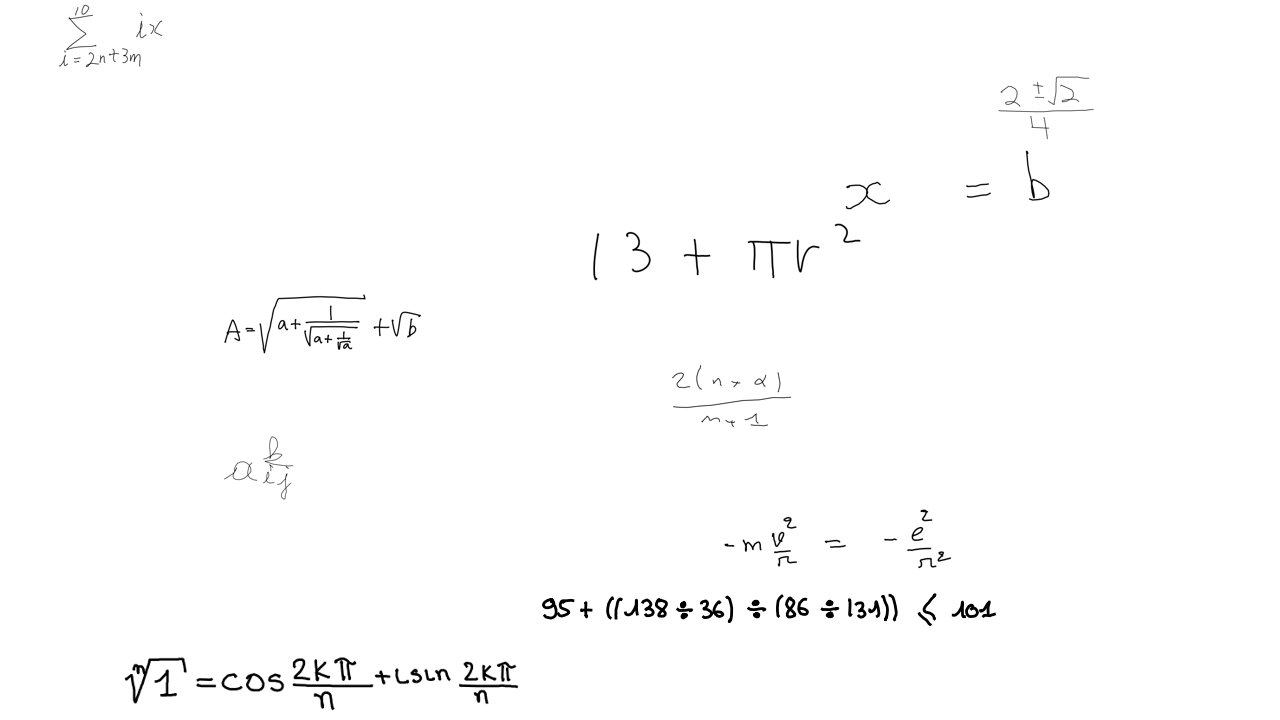 \sum_{i=2n+3m}^{10} ix
\frac{2 \pm \sqrt{2}}{4}
x = b
13 + \pi r^2
A = \sqrt{a + \frac{1}{\sqrt{a + \frac{1}{\sqrt{a}}}}} + \sqrt{b}
\frac{2(n + \alpha)}{n + 1}
a \frac{b}{ij}
-m \frac{v^2}{r} = -\frac{e^2}{r^2}
95 + ((138 ÷ 36) ÷ (86 ÷ 131)) ≤ 101
\sqrt[n]{1} = \cos \frac{2k\pi}{n} + i \sin \frac{2k\pi}{n}